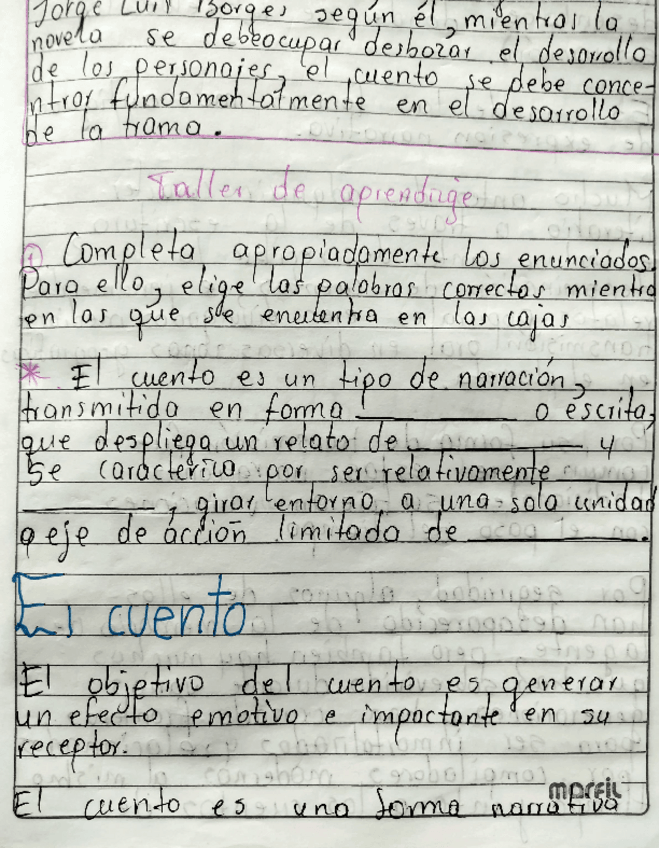 Jorge Luis Borges según él, mientras la
novela se debeocupar desbozar el desarrollo
de los personajes, el cuento se debe conce-
ntrar fundamentalmente en el desarrollo
de la trama.
Taller de aprendizaje
1 Completa apropiadamente los enunciados.
Para ello, elige las palabras correctas mientra
en las que se encuentra en las cajas
* El cuento es un tipo de narración,
transmitida en forma __________ o escrita,
que despliega un relato de __________ y
se caractérico por ser relativamente
__________, girar entorno a una sola unidad
o eje de acción limitado de __________.
El cuento
El objetivo del cuento es generar
un efecto emotivo e impactante en su
receptor.
El cuento es una forma narrativa
marfil